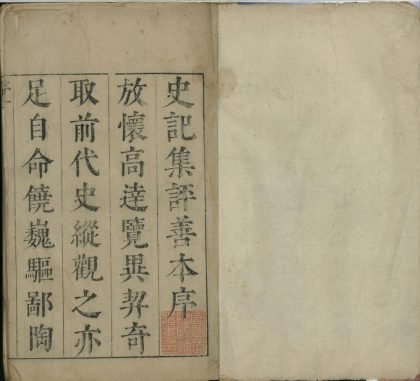 史記集評善本序
放懷高逹覽異契奇
取前代史縱觀之亦
足自命饒巍驅鄙陶